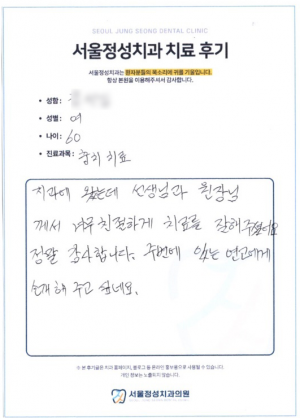 SEOUL JUNG SEONG DENTAL CLINIC
서울정성치과 치료 후기
서울정성치과는 환자분들의 목소리에 귀를 기울입니다.
항상 본원을 이용해주셔서 감사합니다.
• 성함 :
• 성별 : 여
• 나이 : 60
• 진료과목 : 충치 치료
치과에 왔는데 선생님과 원장님
께서 너무 친절하게 치료를 잘해주셨어요
정말 감사합니다. 주변에 있는 연고에게
소개해 주고 싶네요.
※ 본 후기글은 치과 홈페이지, 블로그 등 온라인 홍보용으로 사용될 수 있습니다.
개인 정보는 노출되지 않습니다.
서울정성치과의원